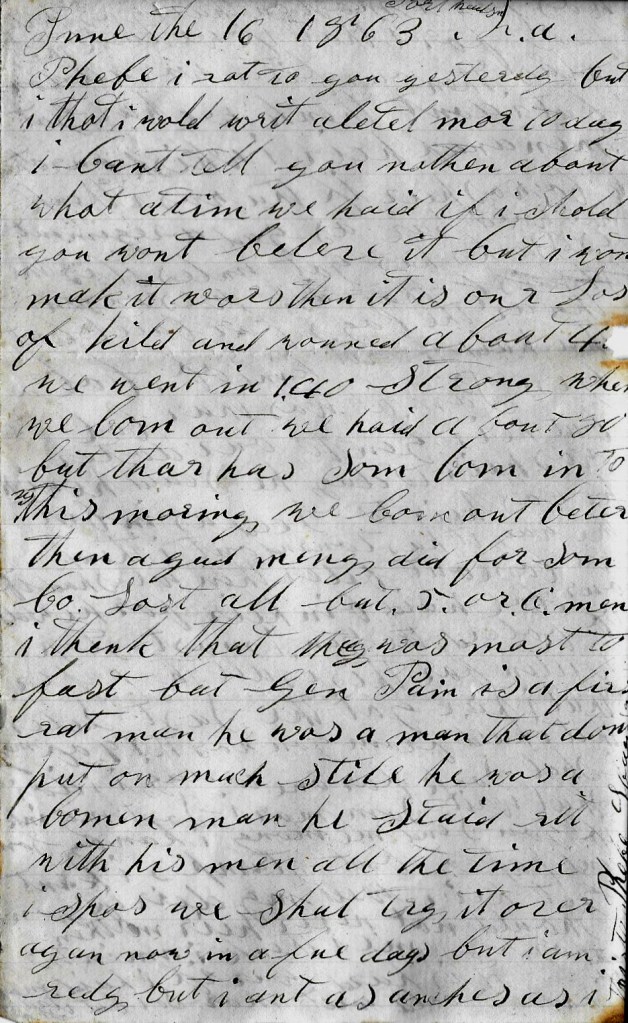 Port hudson
June the 16 1863 . L. a.
Phebe i rat to you yesterdy but
i thot i wold writ a letel mor to day
i cant tell you nothen about
what a tim we haid if i shold
you wont belere it but i won
mak it wors then it is our Los
of kild and wouned about 4
we went in 140 Strong when
we Com out we haid a bout 90
but thar has Som Com in to
us this moring we Com out beter
then a gud meny did for Som
Co. Lost all but. 5. or. 6. men
i thenk that they was most to
fast but Gen Pain is a firs
rat man he was a man that dont
put on much Stile he was a
Comen man he Staid rit
with his men all the time
i spos we Shal try it over
agan now in a fue days but i am
redy but i ant as anches as i
Phebe